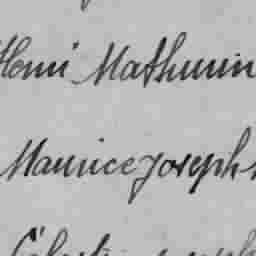 Henri Mathurin
Maurice Joseph